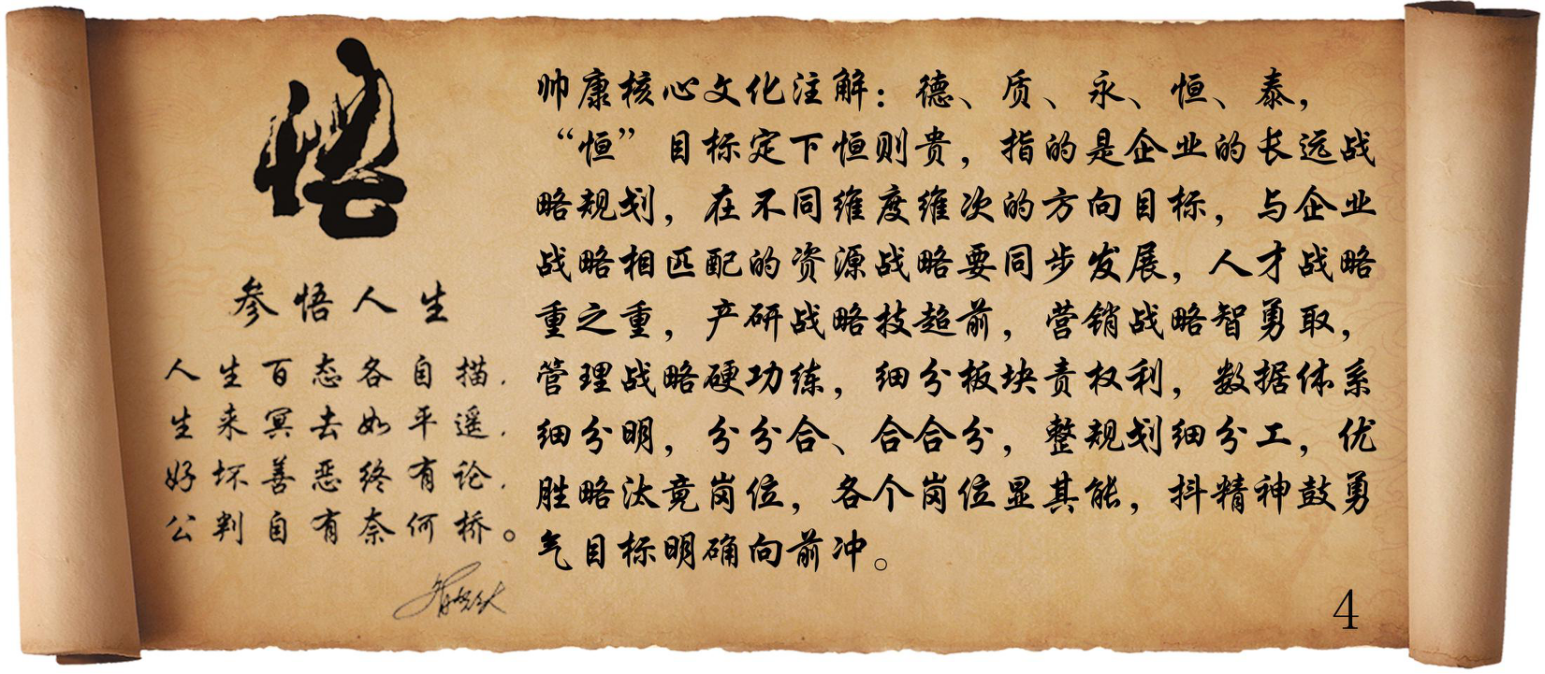 悟
参悟人生
人生百态各自描.
生来冥去如平遥.
好坏善恶终有论.
公判自有奈何桥。
帅康核心文化注解：德、质、永、恒、泰，
“恒”目标定下恒则贵，指的是企业的长远战
略规划，在不同维度维次的方向目标，与企业
战略相匹配的资源战略要同步发展，人才战略
重之重，产研战略技超前，营销战略智勇取，
管理战略硬功练，细分板块责权利，数据体系
细分明，分分合、合合分，整规划细分工，优
胜略汰竟岗位，各个岗位显其能，抖精神鼓勇
气目标明确向前冲。
4